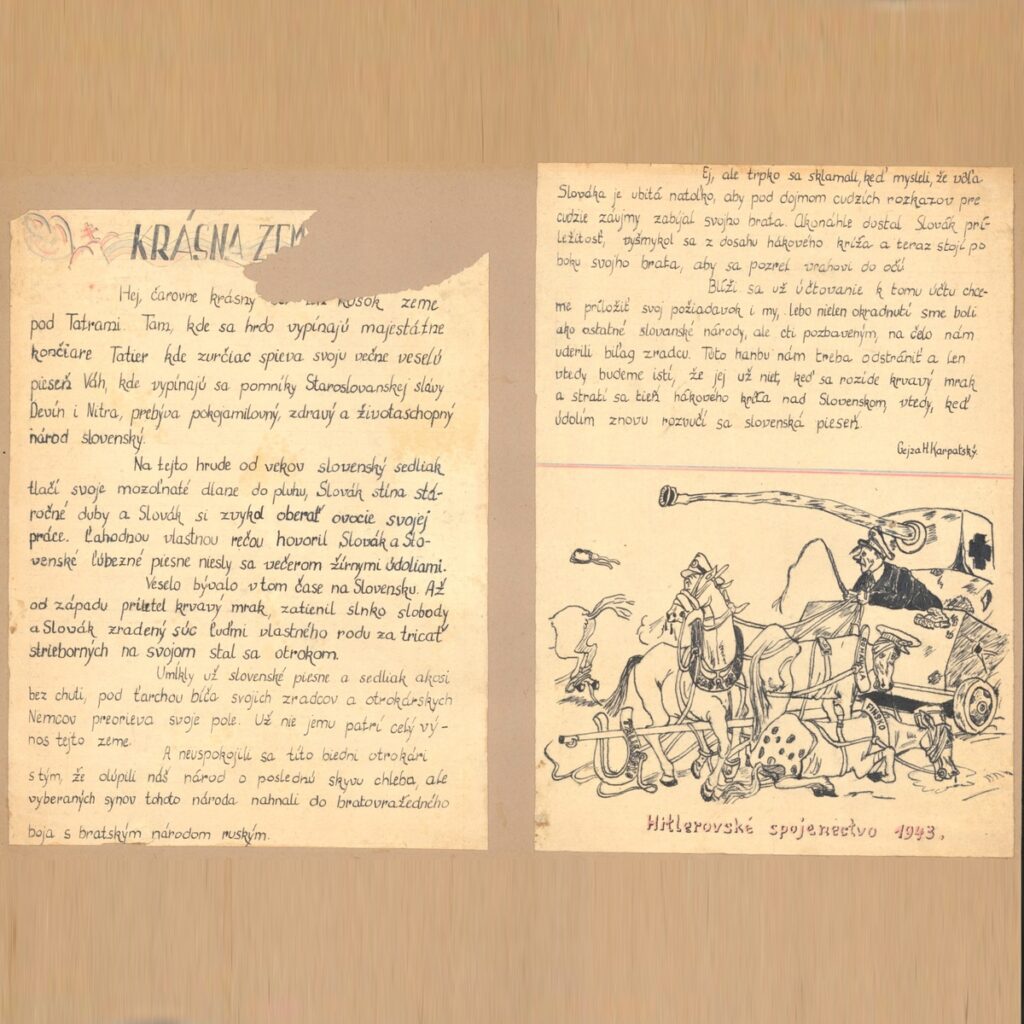 KRÁSNA
Hej, čarovne krásny kúsok zeme
pod Tatrami. Tam, kde sa hrdo vypínajú majestátne
končiare Tatier kde zurčiac spieva svoju večne veselú
pieseň Váh, kde vypínajú sa pomníky Staroslovanskej slávy
Devín i Nitra, prebýva pokojamilovný, zdravý a životaschopný
národ slovenský.
Na tejto hrude od vekov slovenský sedliak
tlačí svoje mozoľnaté dlane do pluhu, Slovák stína stá-
ročné duby a Slovák si zvykol oberať ovocie svojej
práce. Ľahodnou vlastnou rečou hovoril Slovák a Slo-
venské ľúbezné piesne niesly sa večerom žírnymi údoliami.
Veselo bývalo v tom čase na Slovensku. Až
od západu priletel krvavý mrak, zatienil slnko slobody
a Slovák zradený súc ľuďmi vlastného rodu za tricať
strieborných na svojom stal sa otrokom.
Umĺkly už slovenské piesne a sedliak akosi
bez chuti, pod ťarchou bíča svojich zradcov a otrokárskych
Nemcov preorieva svoje pole. Už nie jemu patrí celý vý-
nos tejto zeme.
A neuspokojili sa títo biedni otrokári
s tým, že olúpili náš národ o poslednú skyvu chleba, ale
vyberaných synov tohoto národa nahnali do bratovražedného
boja s bratským národom ruským.
Ej, ale trpko sa sklamali, keď mysleli, že vôľa
Slováka je ubitá natoľko, aby pod dojmom cudzích rozkazov pre
cudzie záujmy zabíjal svojho brata. Akonáhle dostal Slovák prí-
ležitosť, vyšmykol sa z dosahu hákového kríža a teraz stojí po
boku svojho brata, aby sa pozrel vrahovi do očú
Blíži sa už účtovanie k tomu účtu chce-
me príložiť svoj požiadavok i my, lebo nielen okradnutí sme boli
ako ostatné slovanské národy, ale cti pozbaveným, na čelo nám
uderili biľag zradcu. Túto hanbu nám treba odstrániť a len
vtedy budeme istí, že jej už niet, keď sa rozíde krvavý mrak
a stratí sa tieň hákového kríža nad Slovenskom, vtedy, keď
údolím znovu rozvučí sa slovenská pieseň.
Gejza H. Karpatský.
Hitlerovské spojenectvo 1943.